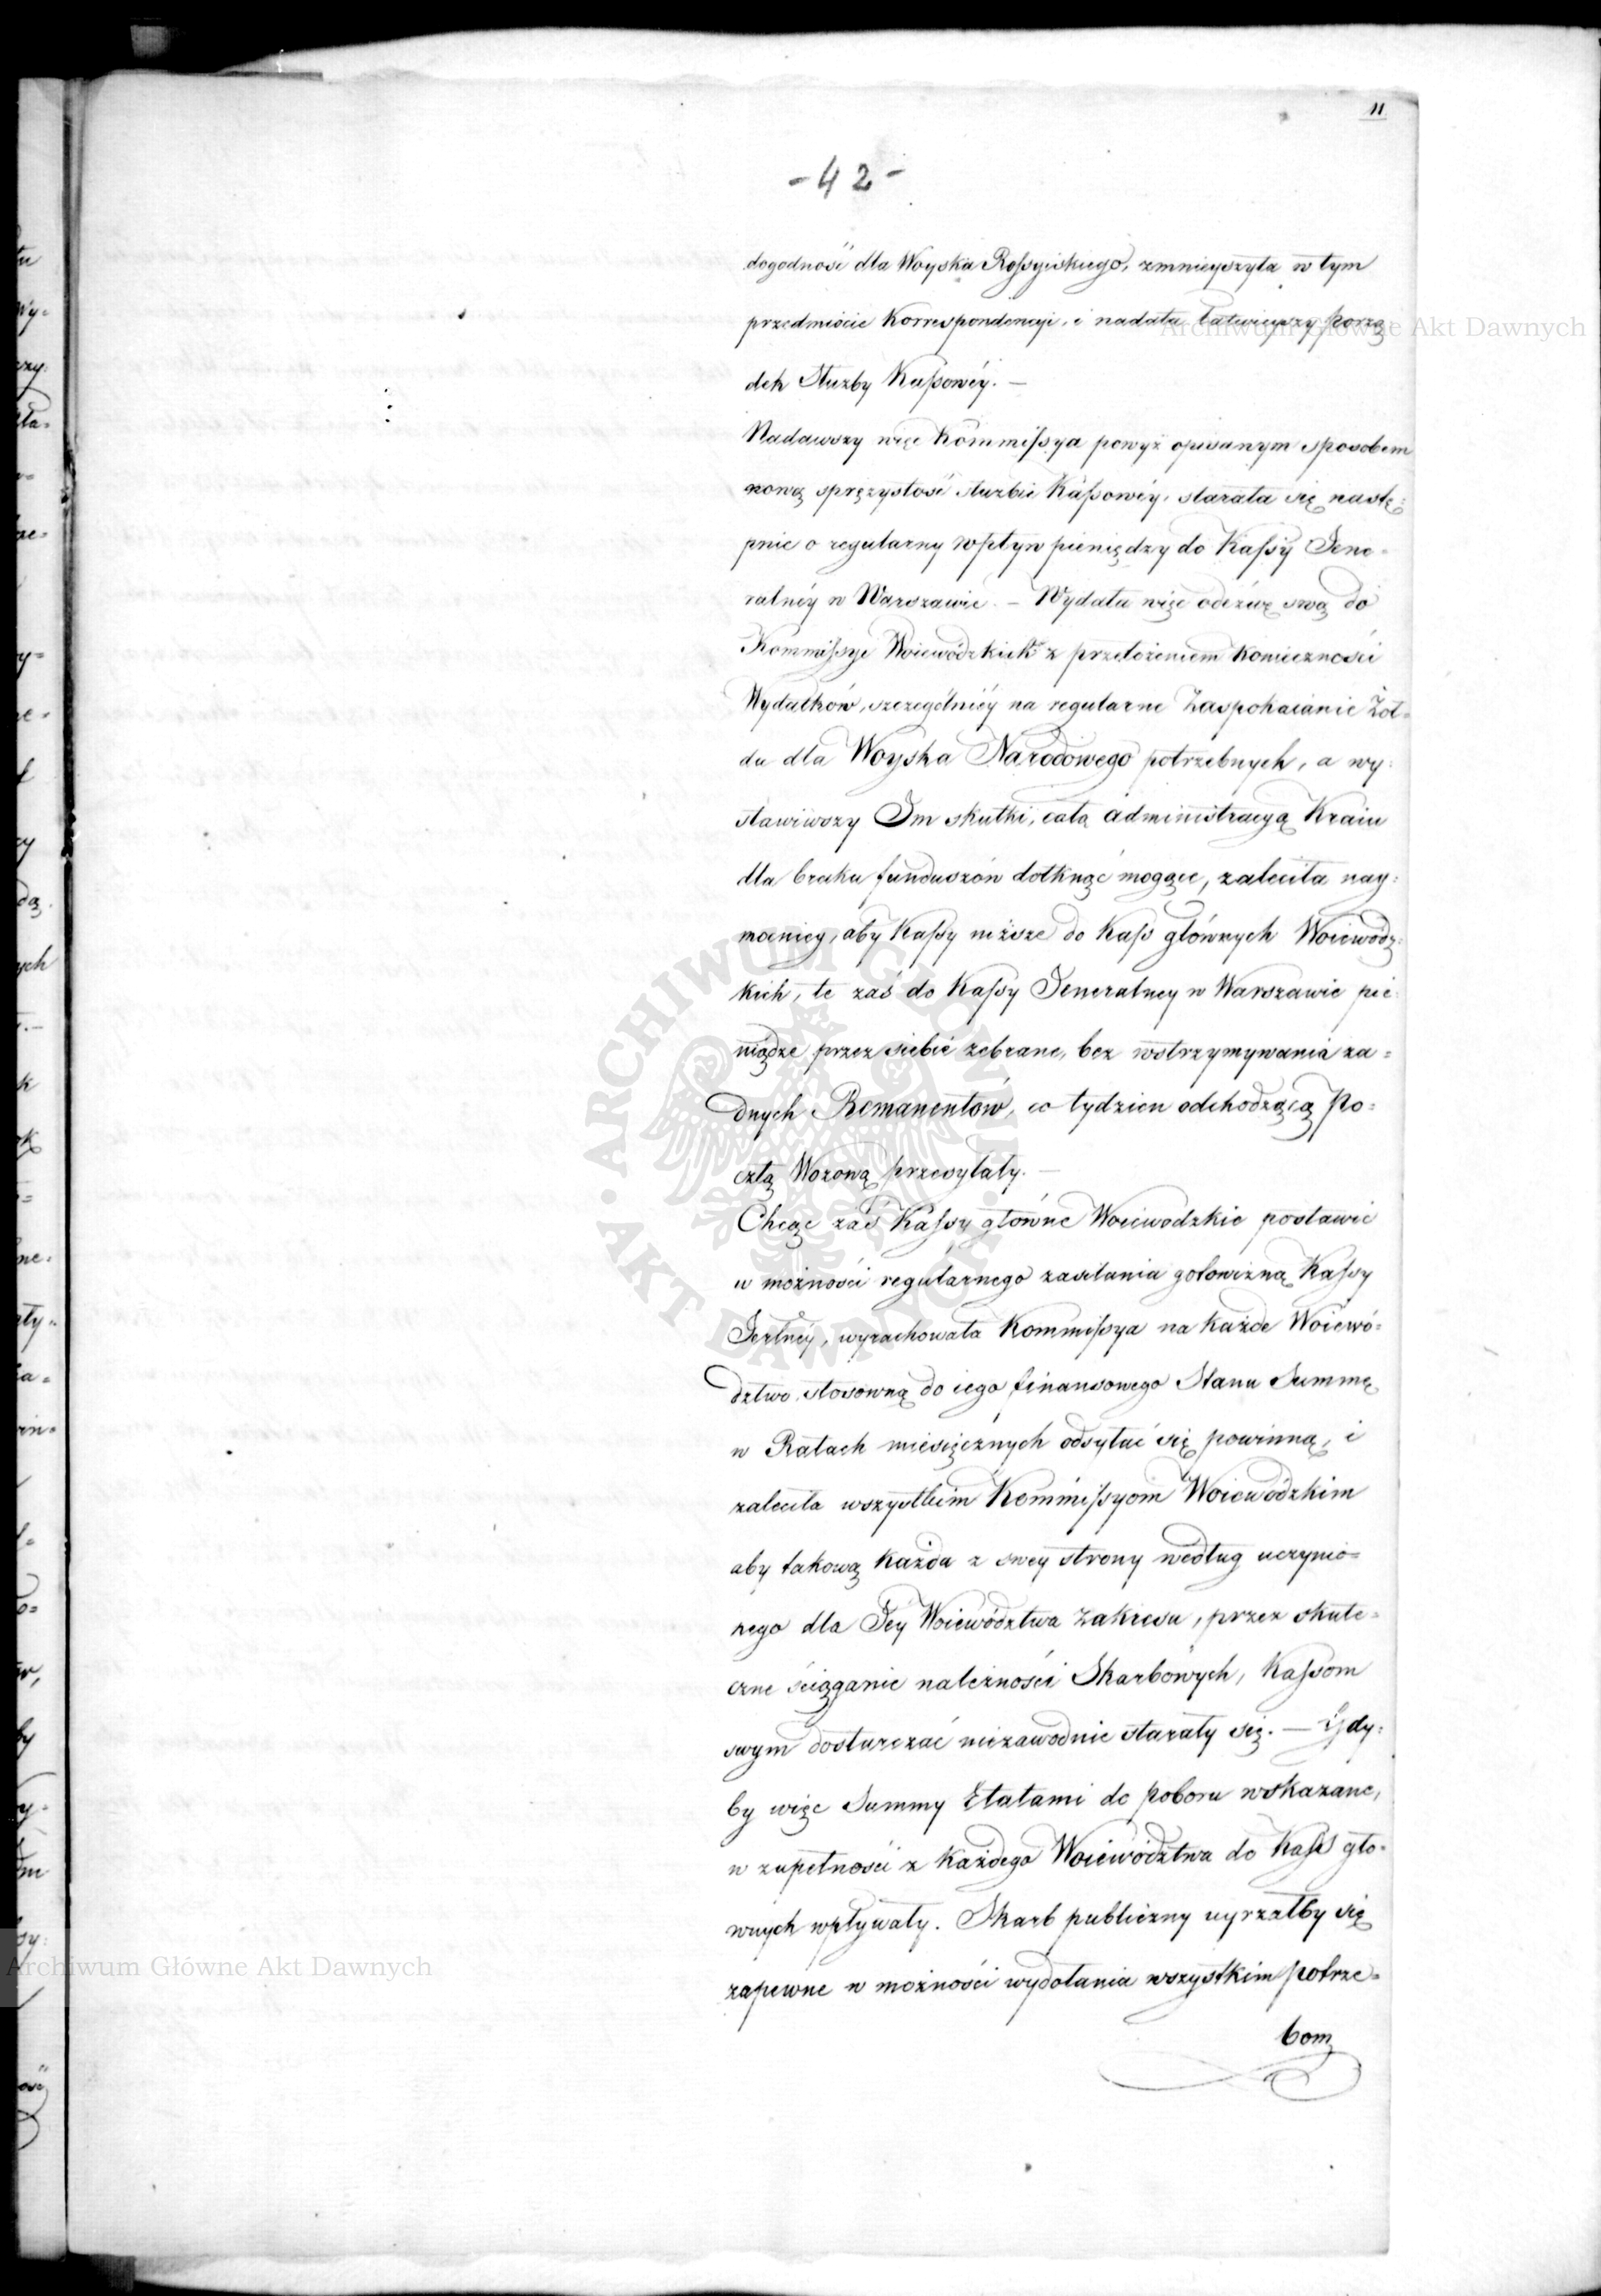 11
- 42 -
dogodność dla Woyska Rossyiskiego, zmnieyszyła w tym
przedmiocie Korrespondencyi, i nadała łatwieyszy porzą
dek Służby Kassowéy. —
Nadawszy więc Kommissya powyż opisanym sposobem
nową sprężystość służbie Kassowéy, starała się nastę=
pnie o regularny wpływ pieniędzy do Kassy Jene=
ralnéy w Warszawie. — Wydała więc odezwę swą do
Kommissyi Woiewódzkich z przełożeniem konieczności
Wydatków, szczególniéy na regularne Zaspokaianie Żoł=
du dla Woyska Narodowego potrzebnych, a wy=
stawiwszy Im skutki, całą administracyą Kraiu
dla braku funduszów dotknąć mogące, zaleciła nay=
mocniey, aby Kassy niższe do Kass głównych Woiewódz=
kich, te zaś do Kassy Jeneralney w Warszawie pie=
niądze przez siebie zebrane, bez wstrzymywania ża=
dnych Remanentów, co tydzien odchodzącą Po=
cztą Wozową przesyłały. —
Chcąc zaś Kassy główne Woiewodzkie postawić
w możności regularnego zasilania gotowizną Kassy
Jerlnéy, wyrachowała Kommissya na każde Woiewó=
dztwo, stosowną do iego finansowego Stanu Summę
w Ratach miesięcznych odsyłać się powinną, i
zaleciła wszystkim Kommissyom Woiewódzkim
aby takową każda z swey strony według uczynio=
nego dla Jey Woiewództwa Zakresu, przez skute=
czne ściąganie należności Skarbowych, Kassom
swym dostarczać niezawodnie starały się. — Gdy=
by więc Summy Etatami do poboru wskazane,
w zupełności z każdego Woiewództwa do Kass głó=
wnych wpływały. Skarb publiczny uyrzałby się
zapewne w możności wydołania wszystkim potrze=
bom
Archiwum Główne Akt Dawnych
Archiwum Główne Akt Dawnych
· ARCHIWUM GŁÓWNE · AKT DAWNYCH